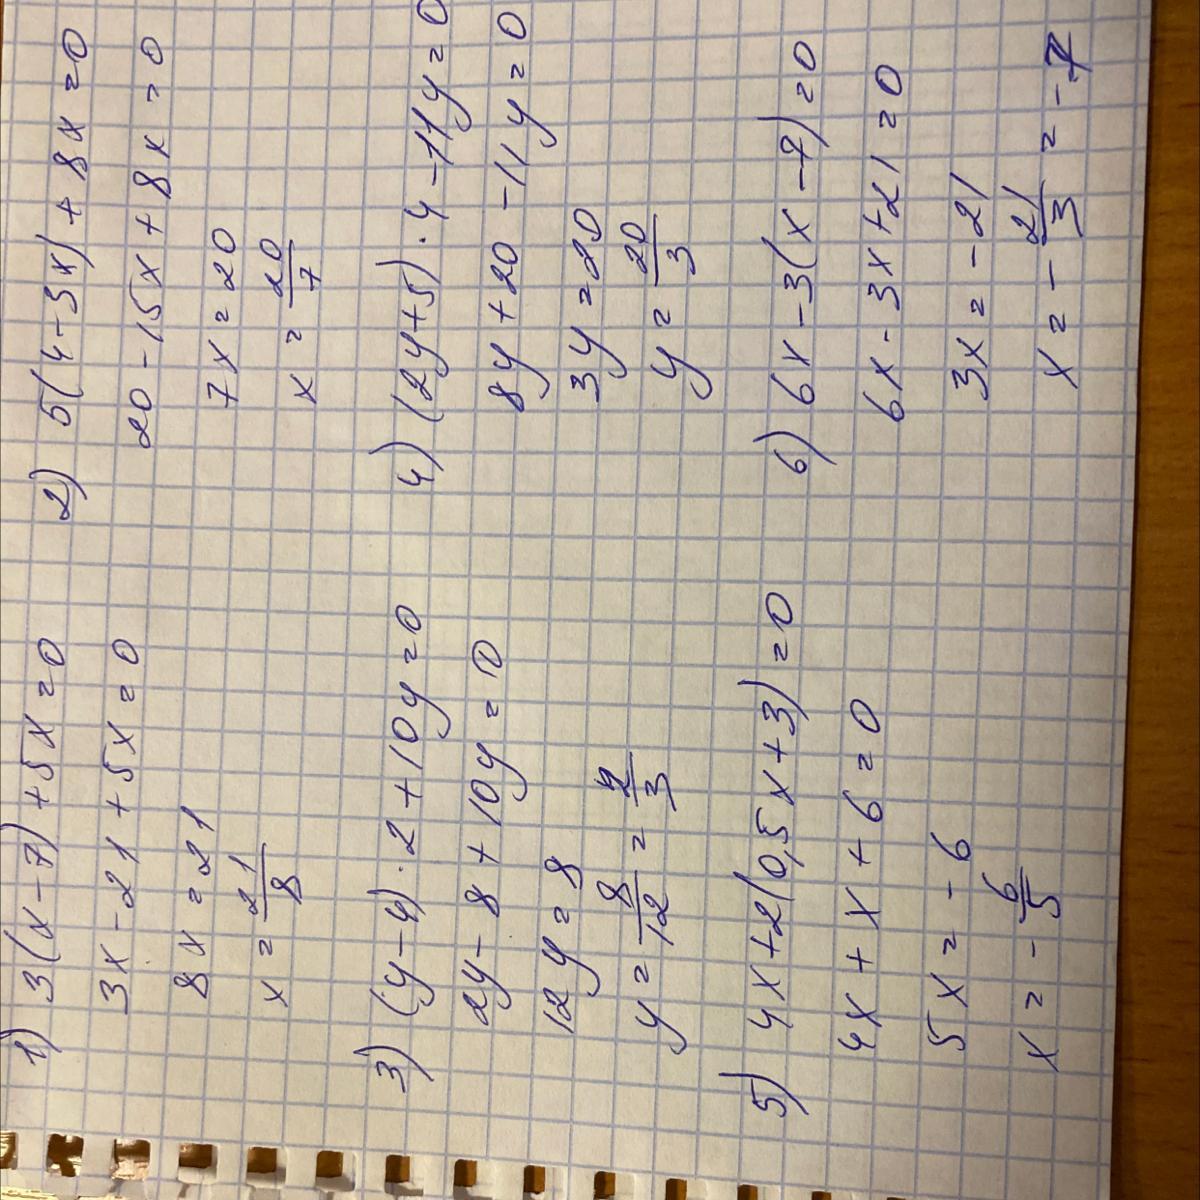 1) 3(x-7)+5x=0
3x-21+5x=0
8x=21
x=21/8
2) 5(4-3x)+8x=0
20-15x+8x=0
7x=20
x=20/7
3) (y-4)·2+10y=0
2y-8+10y=0
12y=8
y=8/12=2/3
4) (2y+5)·4-11y=0
8y+20-11y=0
3y=20
y=20/3
5) 4x+2(0,5x+3)=0
4x+x+6=0
5x=-6
x=-6/5
6) 6x-3(x-7)=0
6x-3x+21=0
3x=-21
x=-21/3=-7